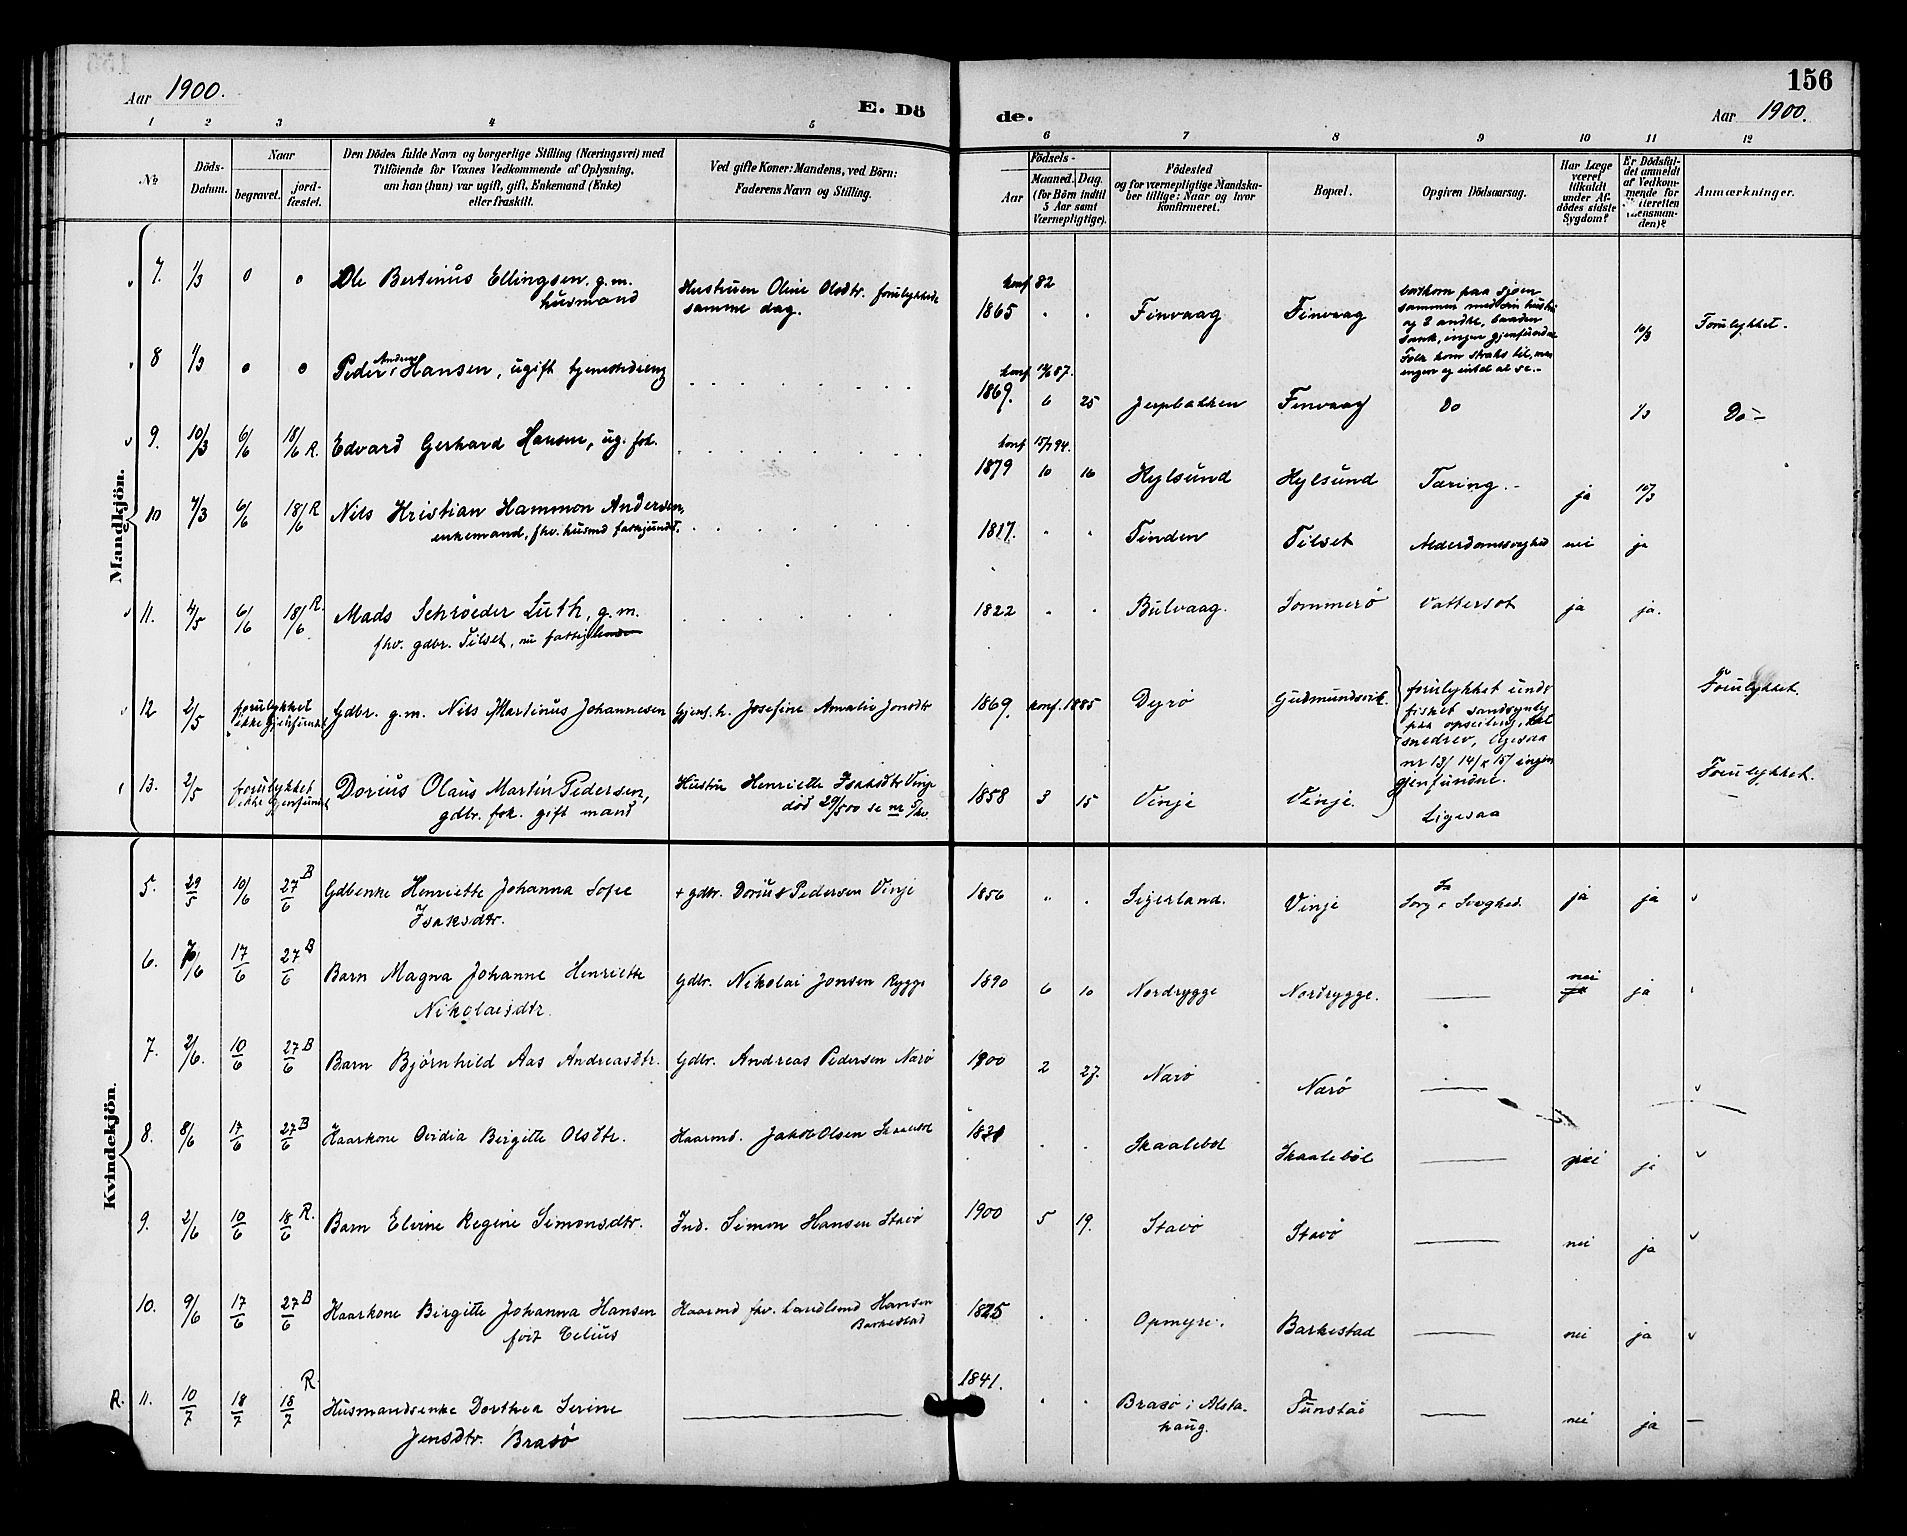 Aar 1900.
E. Dö
de.
156
Aar 1900.
1 2 3 4 5 6 7 8 9 10 11 12
No
Döds-
Datum.
Naar
begravet.
jord-
fæstet.
Den Dödes fulde Navn og borgerlige Stilling (Næringsvei) med
Tilföiende for Voxnes Vedkommende af Oplysning,
om han (hun) var ugift, gift, Enkemand (Enke)
eller fraskilt.
Ved gifte Koner: Mandens, ved Börn:
Faderens Navn og Stilling.
Födsels-
Aar
Maaned. Dag.
(for Börn indtil
5 Aar samt
Værnepligtige).
Födested
og for værnepligtige Mandska-
ber tillige: Naar og hvor
konfirmeret.
Bopæl.
Opgiven Dödsaarsag.
Har Læge
været
tilkaldt
under Af-
dödes sidste
Sygdom?
Er Dödsfal-
det anmeldt
af Vedkom-
mende for
Skifteretten
(Lensman-
den)?
Anmærkninger.
Mandkjön.
7. 1/3 0 0 Ole Bertinus Ellingsen. g.m.
husmand
Hustruen Oline Olsdtr. forulykkede
samme dag.
konf 82
1865 " " Finvaag Finvaag
bortkom paa sjøen
sammen med sin hustru
og 2 andre, baaden
sank, ingen gjenfundne
Folk kom straks til, men
10/3 Forulykket.
8 1/3 0 0 Peder Andreas Hansen, ugift tjenestedreng
konf. 87.
1869. 6 25 Jerpbakken Finvaag Do 1/3 Do –
9. 10/3 6/6 18/6 R. Edvard Gerhard Hansen, ug. fsk.
konf 15/7 94.
1879 10 16 Hylsund Hylsund Tæring. – ja 10/3
10 7/3 6/6 18/6 R Nils Kristian Hammon Andersen,
enkemand, fhv. husmd
1817. " " Tinden Tilset Alderdomssvaghed nei ja
11. 4/5 6/6 18/6 R. Mads Schrøeder Luth, g.m.
fhv. gdbr. Tilset, nu fattiglem
1822 " " Bulvaag. Sommerø Vattersot ja ja.
12 2/5 forulykket
ikke gjenfundet
Gdbr. g.m. Nils Martinus Johannesen Gjenf. h. Josefine Amalie Jonsdtr
1869. konf. 1885 Dyrø Gudmundsvik.
forulykket under
fisket sandsynlig
paa opseiling,
snedrev, ligesaa
nr 13/ 14/ & 15/ ingen
gjenfundne.
Forulykket.
13. 2/5 forulykket
ikke gjenfundet
Dorius Olaus Martin Pedersen,
gdbr. fsk. gift mand
Hustru Henriette Isaksdtr Vinje
död 29/5 00 se nr 5/kv.
1858 3 15 Vinje Vinje.
Ligesaa
Forulykket.
Kvindekjön.
5. 29/5 10/6 27/6 B Gdbenke Henriette Johanna Sofie
Isaksdtr.
+ gdbr. Dorius Pedersen Vinje
1856 " " Sigerland. Vinje Sorg & Svaghed. ja ja v
6. 7/6 17/6 27/6 B Barn Magna Johanne Henriette
Nikolaisdtr.
Gdbr. Nikolai Jonsen Rygge
1890 6 10 Nordrygge Nordrygge. — nei ja
7. 2/6. 10/6 27/6 B Barn Bjørnhild Aas Andreasdtr. Gdbr. Andreas Pedersen Narø
1900 2 27. Narø Narø — v
8. 8/6 17/6 27/6 B Haarkone Ovidia Birgitte Olsdtr. Haarmd. Jakob Olsen Skaalebol
1821 " " Skaalebol Skaalebøl — nei ja v
9. 2/6 10/6 18/6 R. Barn Elvine Regine Simonsdtr. Ind. Simon Hansen Stavø
1900 5 19. Stavø Stavø — nei ja v
10. 9/6 17/6 27/6 B Haarkone Birgitte Johanna Hansen
født Celius
Haarmd fhv. handlsmd Hansen
Barkestad
1825 " " Opmyre. Barkestad — nei ja v
R. 11. 10/7 18/7 18/7 R. Husmandsenke Dorthea Serine
Jensdtr. Brasø
—
1841. " " Brasø i Alsta-
haug.
Tunstad — nei ja —